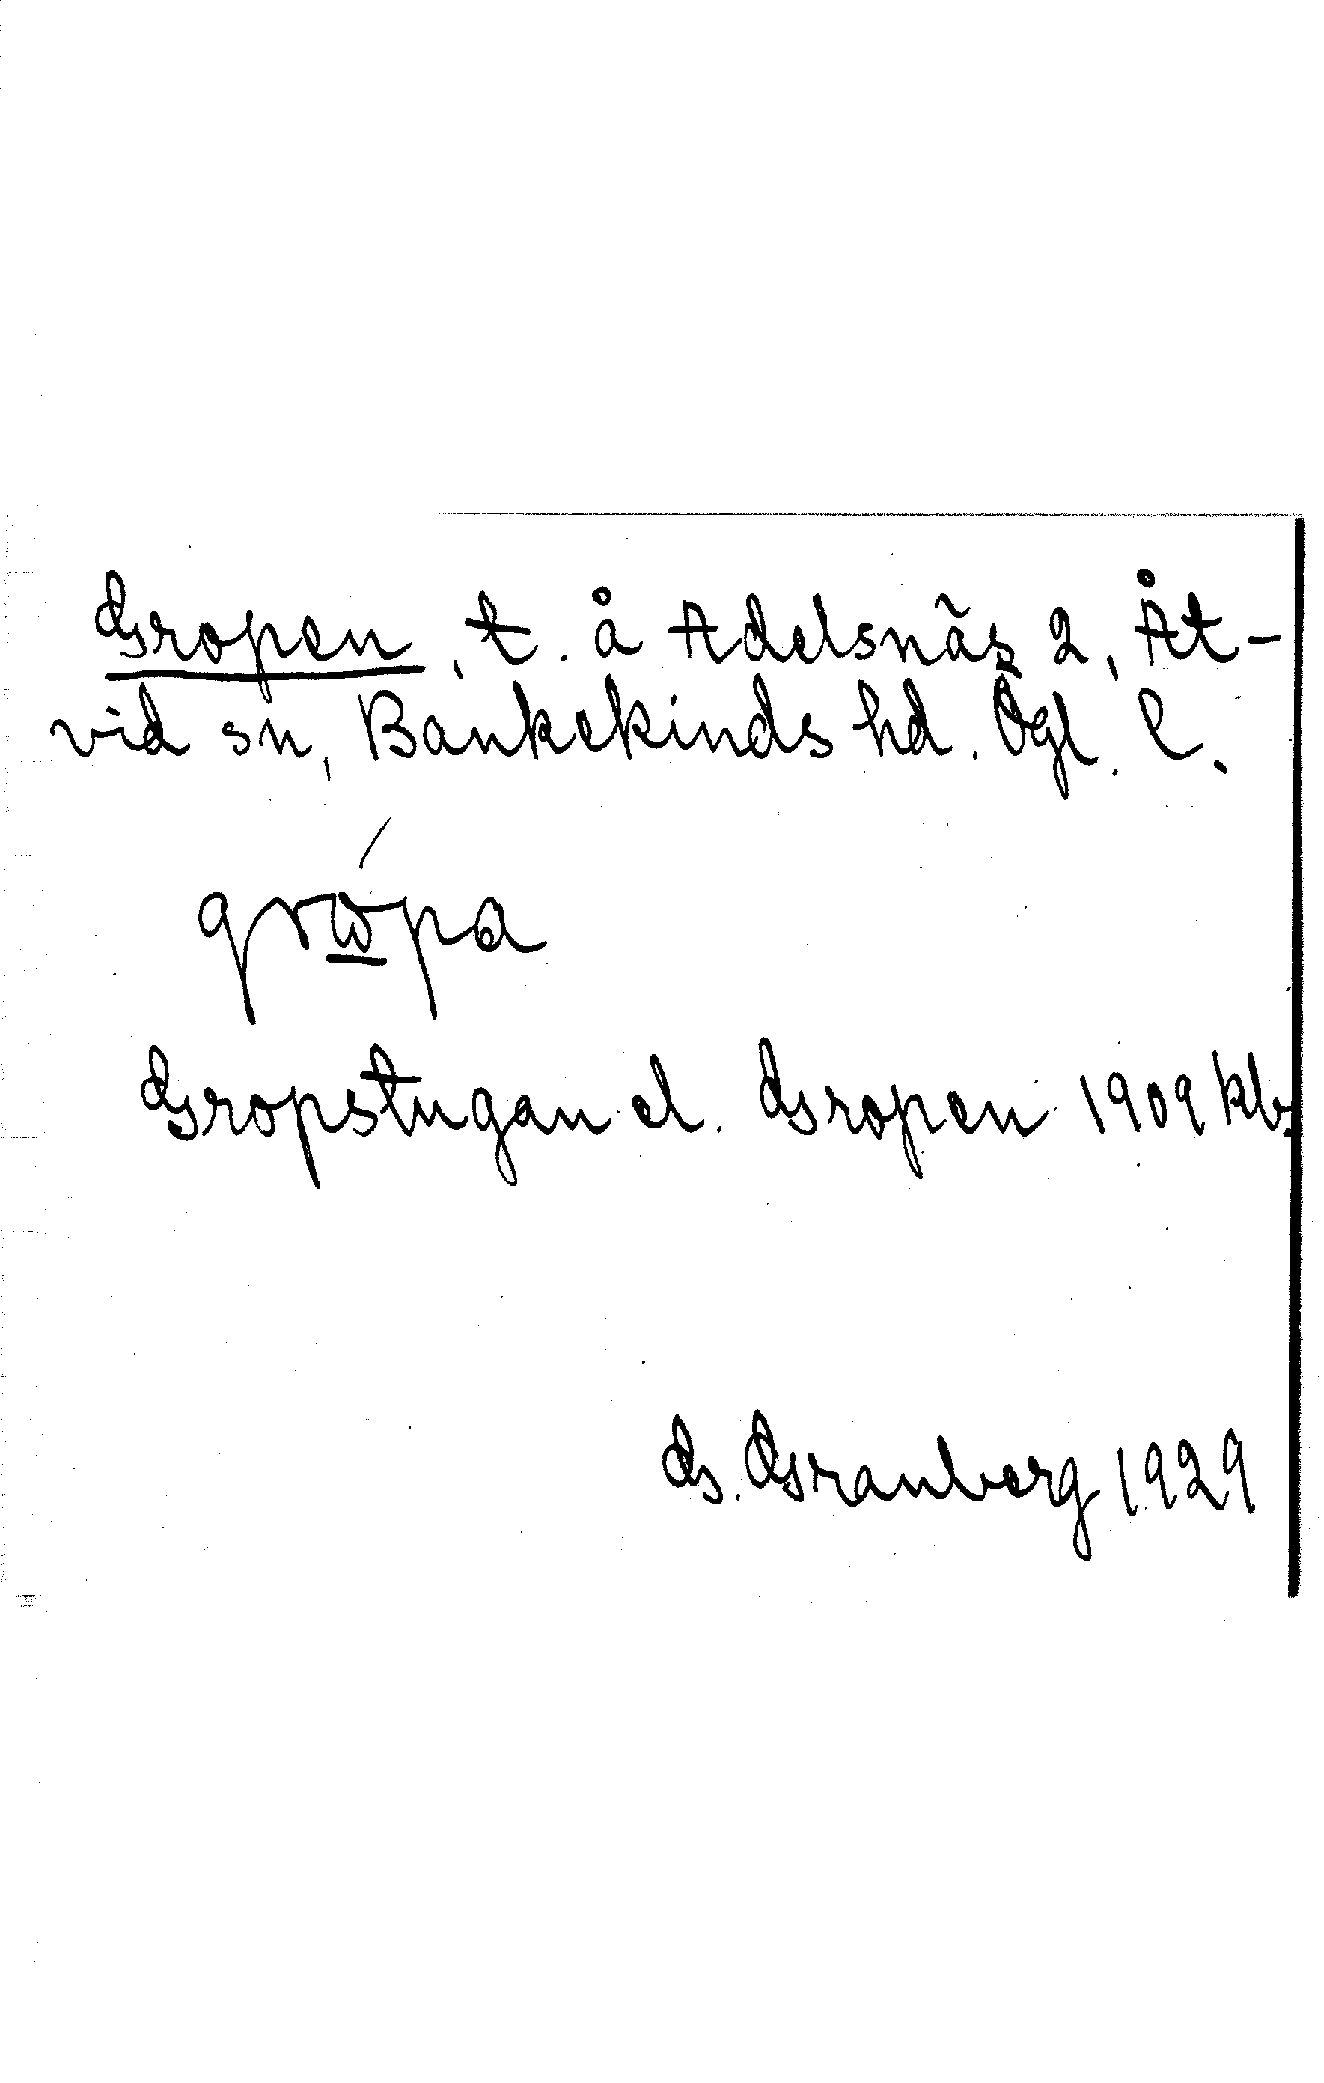 Gropen, t. å Adelsnäs 2, Åt-
vid sn, Bankekinds hd. Ögl. l.
grώ̲pa
Gropstugan el. Gropen 1909 kb.
G. Granberg 1929